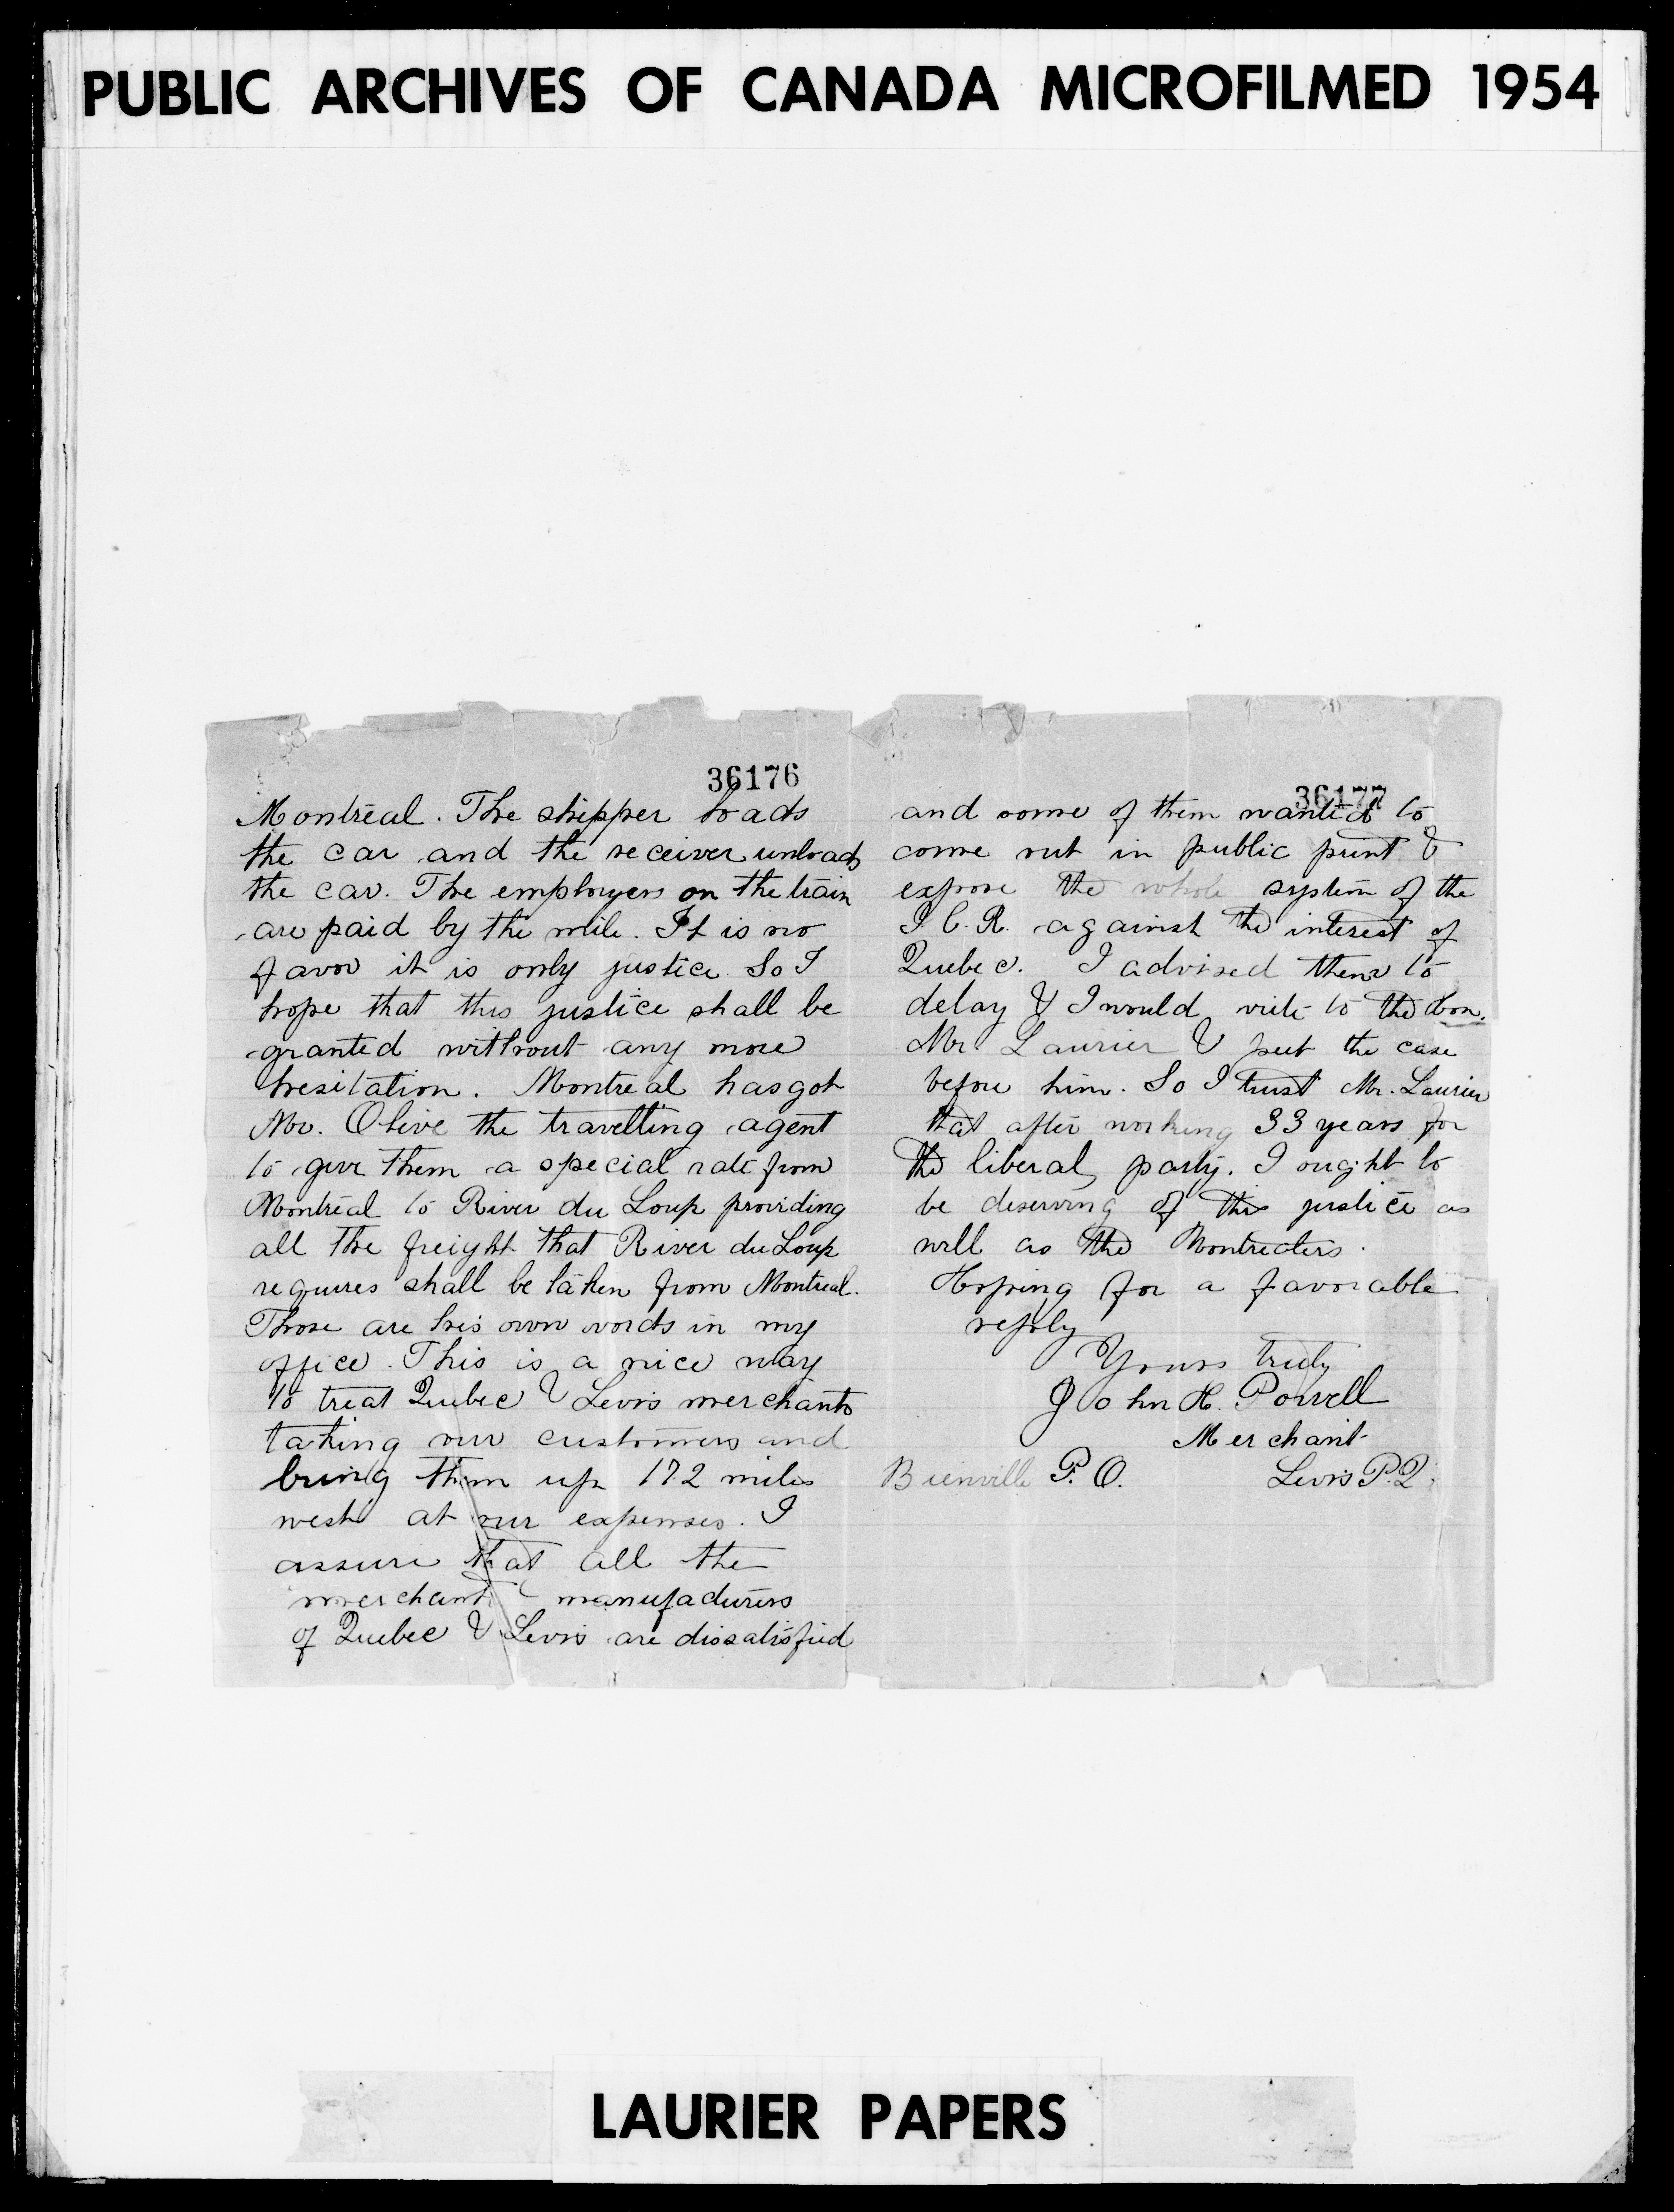 PUBLIC ARCHIVES OF CANADA MICROFILMED 1954
36176
Montreal. The shipper loads
the car and the receiver unloads
the car. The employers on the train
are paid by the mile. It is no
favor it is only justice So I
hope that this justice shall be
granted without any more
hesitation. Montreal has got
Mr. Olive the travelling agent
to give them a special rate from
Montreal to River du Loup providing
all the freight that River du Loup
requires shall be taken from Montreal.
Those are his own words in my
office. This is a nice way
to treat Quebec & Levis merchants
taking our customers and
bring them up 172 miles
west at our expenses. I
assure that all the
merchants & manufacturers
of Quebec & Levis are dissatisfied
36177
and some of them wanted to
come out in public print &
expose the whole system of the
I. C. R. against the interest of
Quebec. I advised them to
delay & I would write to the Hon.
Mr. Laurier & put the case
before him. So I trust Mr. Laurier
that after working 33 years for
the liberal party. I ought to
be deserving of this justice as
well as the Montrealers.
Hoping for a favorable
reply
Yours truly
John H. Powell
Merchant
Bienville P. O. Levis P.Q.
LAURIER PAPERS